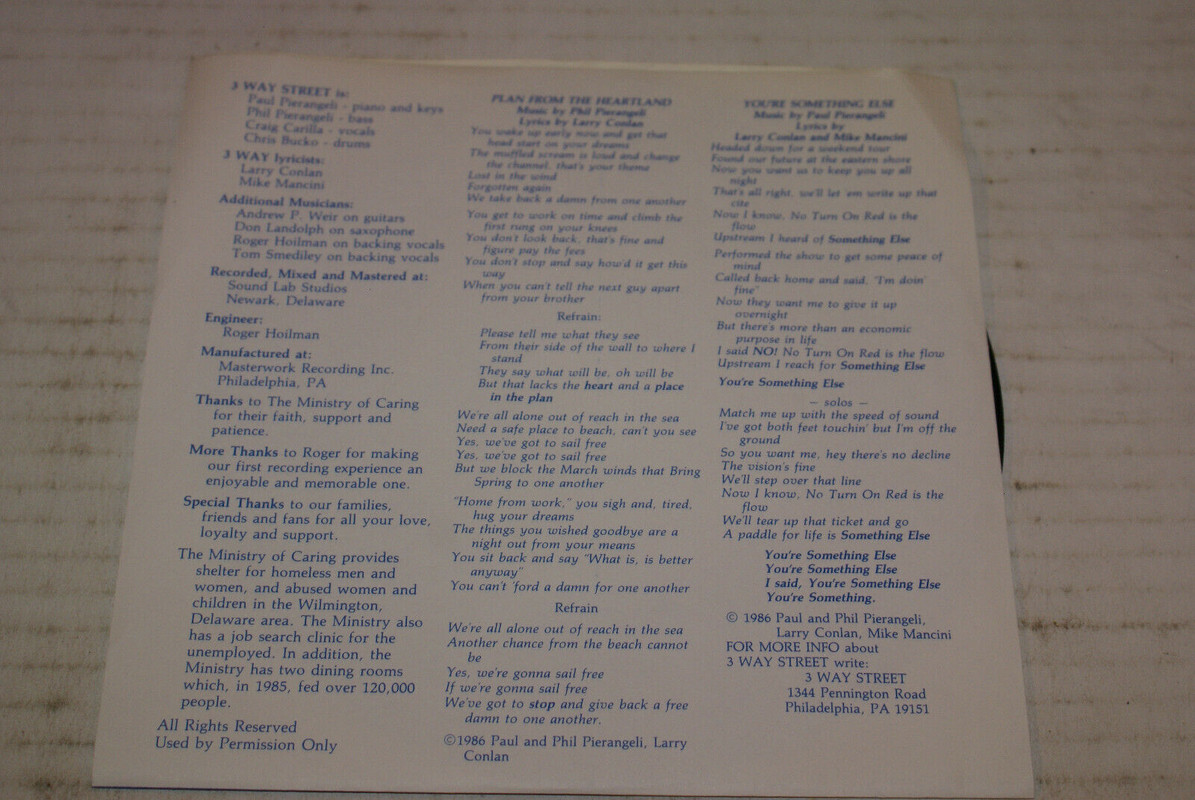 3 WAY STREET is:
Paul Pierangeli - piano and keys
Phil Pierangeli - bass
Craig Carilla - vocals
Chris Bucko - drums
3 WAY lyricists:
Larry Conlan
Mike Mancini
Additional Musicians:
Andrew P. Weir on guitars
Don Landolph on saxophone
Roger Hoilman on backing vocals
Tom Smediley on backing vocals
Recorded, Mixed and Mastered at:
Sound Lab Studios
Newark, Delaware
Engineer:
Roger Hoilman
Manufactured at:
Masterwork Recording Inc.
Philadelphia, PA
Thanks to The Ministry of Caring
for their faith, support and
patience.
More Thanks to Roger for making
our first recording experience an
enjoyable and memorable one.
Special Thanks to our families,
friends and fans for all your love,
loyalty and support.
The Ministry of Caring provides
shelter for homeless men and
women, and abused women and
children in the Wilmington,
Delaware area. The Ministry also
has a job search clinic for the
unemployed. In addition, the
Ministry has two dining rooms
which, in 1985, fed over 120,000
people.
All Rights Reserved
Used by Permission Only
PLAN FROM THE HEARTLAND
Music by Phil Pierangeli
Lyrics by Larry Conlan
You wake up early now and get that
head start on your dreams
The muffled scream is loud and change
the channel, that's your theme
Lost in the wind
Forgotten again
We take back a damn from one another
You get to work on time and climb the
first rung on your knees
You don't look back, that's fine and
figure pay the fees
You don't stop and say how'd it get this
way
When you can't tell the next guy apart
from your brother
Refrain:
Please tell me what they see
From their side of the wall to where I
stand
They say what will be, oh will be
But that lacks the heart and a place
in the plan
We're all alone out of reach in the sea
Need a safe place to beach, can't you see
Yes, we've got to sail free
Yes, we've got to sail free
But we block the March winds that Bring
Spring to one another
"Home from work," you sigh and, tired,
hug your dreams
The things you wished goodbye are a
night out from your means
You sit back and say "What is, is better
anyway"
You can't 'ford a damn for one another
Refrain
We're all alone out of reach in the sea
Another chance from the beach cannot
be
Yes, we're gonna sail free
If we're gonna sail free
We've got to stop and give back a free
damn to one another.
©1986 Paul and Phil Pierangeli, Larry
Conlan
YOU'RE SOMETHING ELSE
Music by Paul Pierangeli
Lyrics by
Larry Conlan and Mike Mancini
Headed down for a weekend tour
Found our future at the eastern shore
Now you want us to keep you up all
night
That's all right, we'll let 'em write up that
cite
Now I know, No Turn On Red is the
flow
Upstream I heard of Something Else
Performed the show to get some peace of
mind
Called back home and said, "I'm doin'
fine"
Now they want me to give it up
overnight
But there's more than an economic
purpose in life
I said NO! No Turn On Red is the flow
Upstream I reach for Something Else
You're Something Else
— solos —
Match me up with the speed of sound
I've got both feet touchin' but I'm off the
ground
So you want me, hey there's no decline
The vision's fine
We'll step over that line
Now I know, No Turn On Red is the
flow
We'll tear up that ticket and go
A paddle for life is Something Else
You're Something Else
You're Something Else
I said, You're Something Else
You're Something.
© 1986 Paul and Phil Pierangeli,
Larry Conlan, Mike Mancini
FOR MORE INFO about
3 WAY STREET write:
3 WAY STREET
1344 Pennington Road
Philadelphia, PA 19151